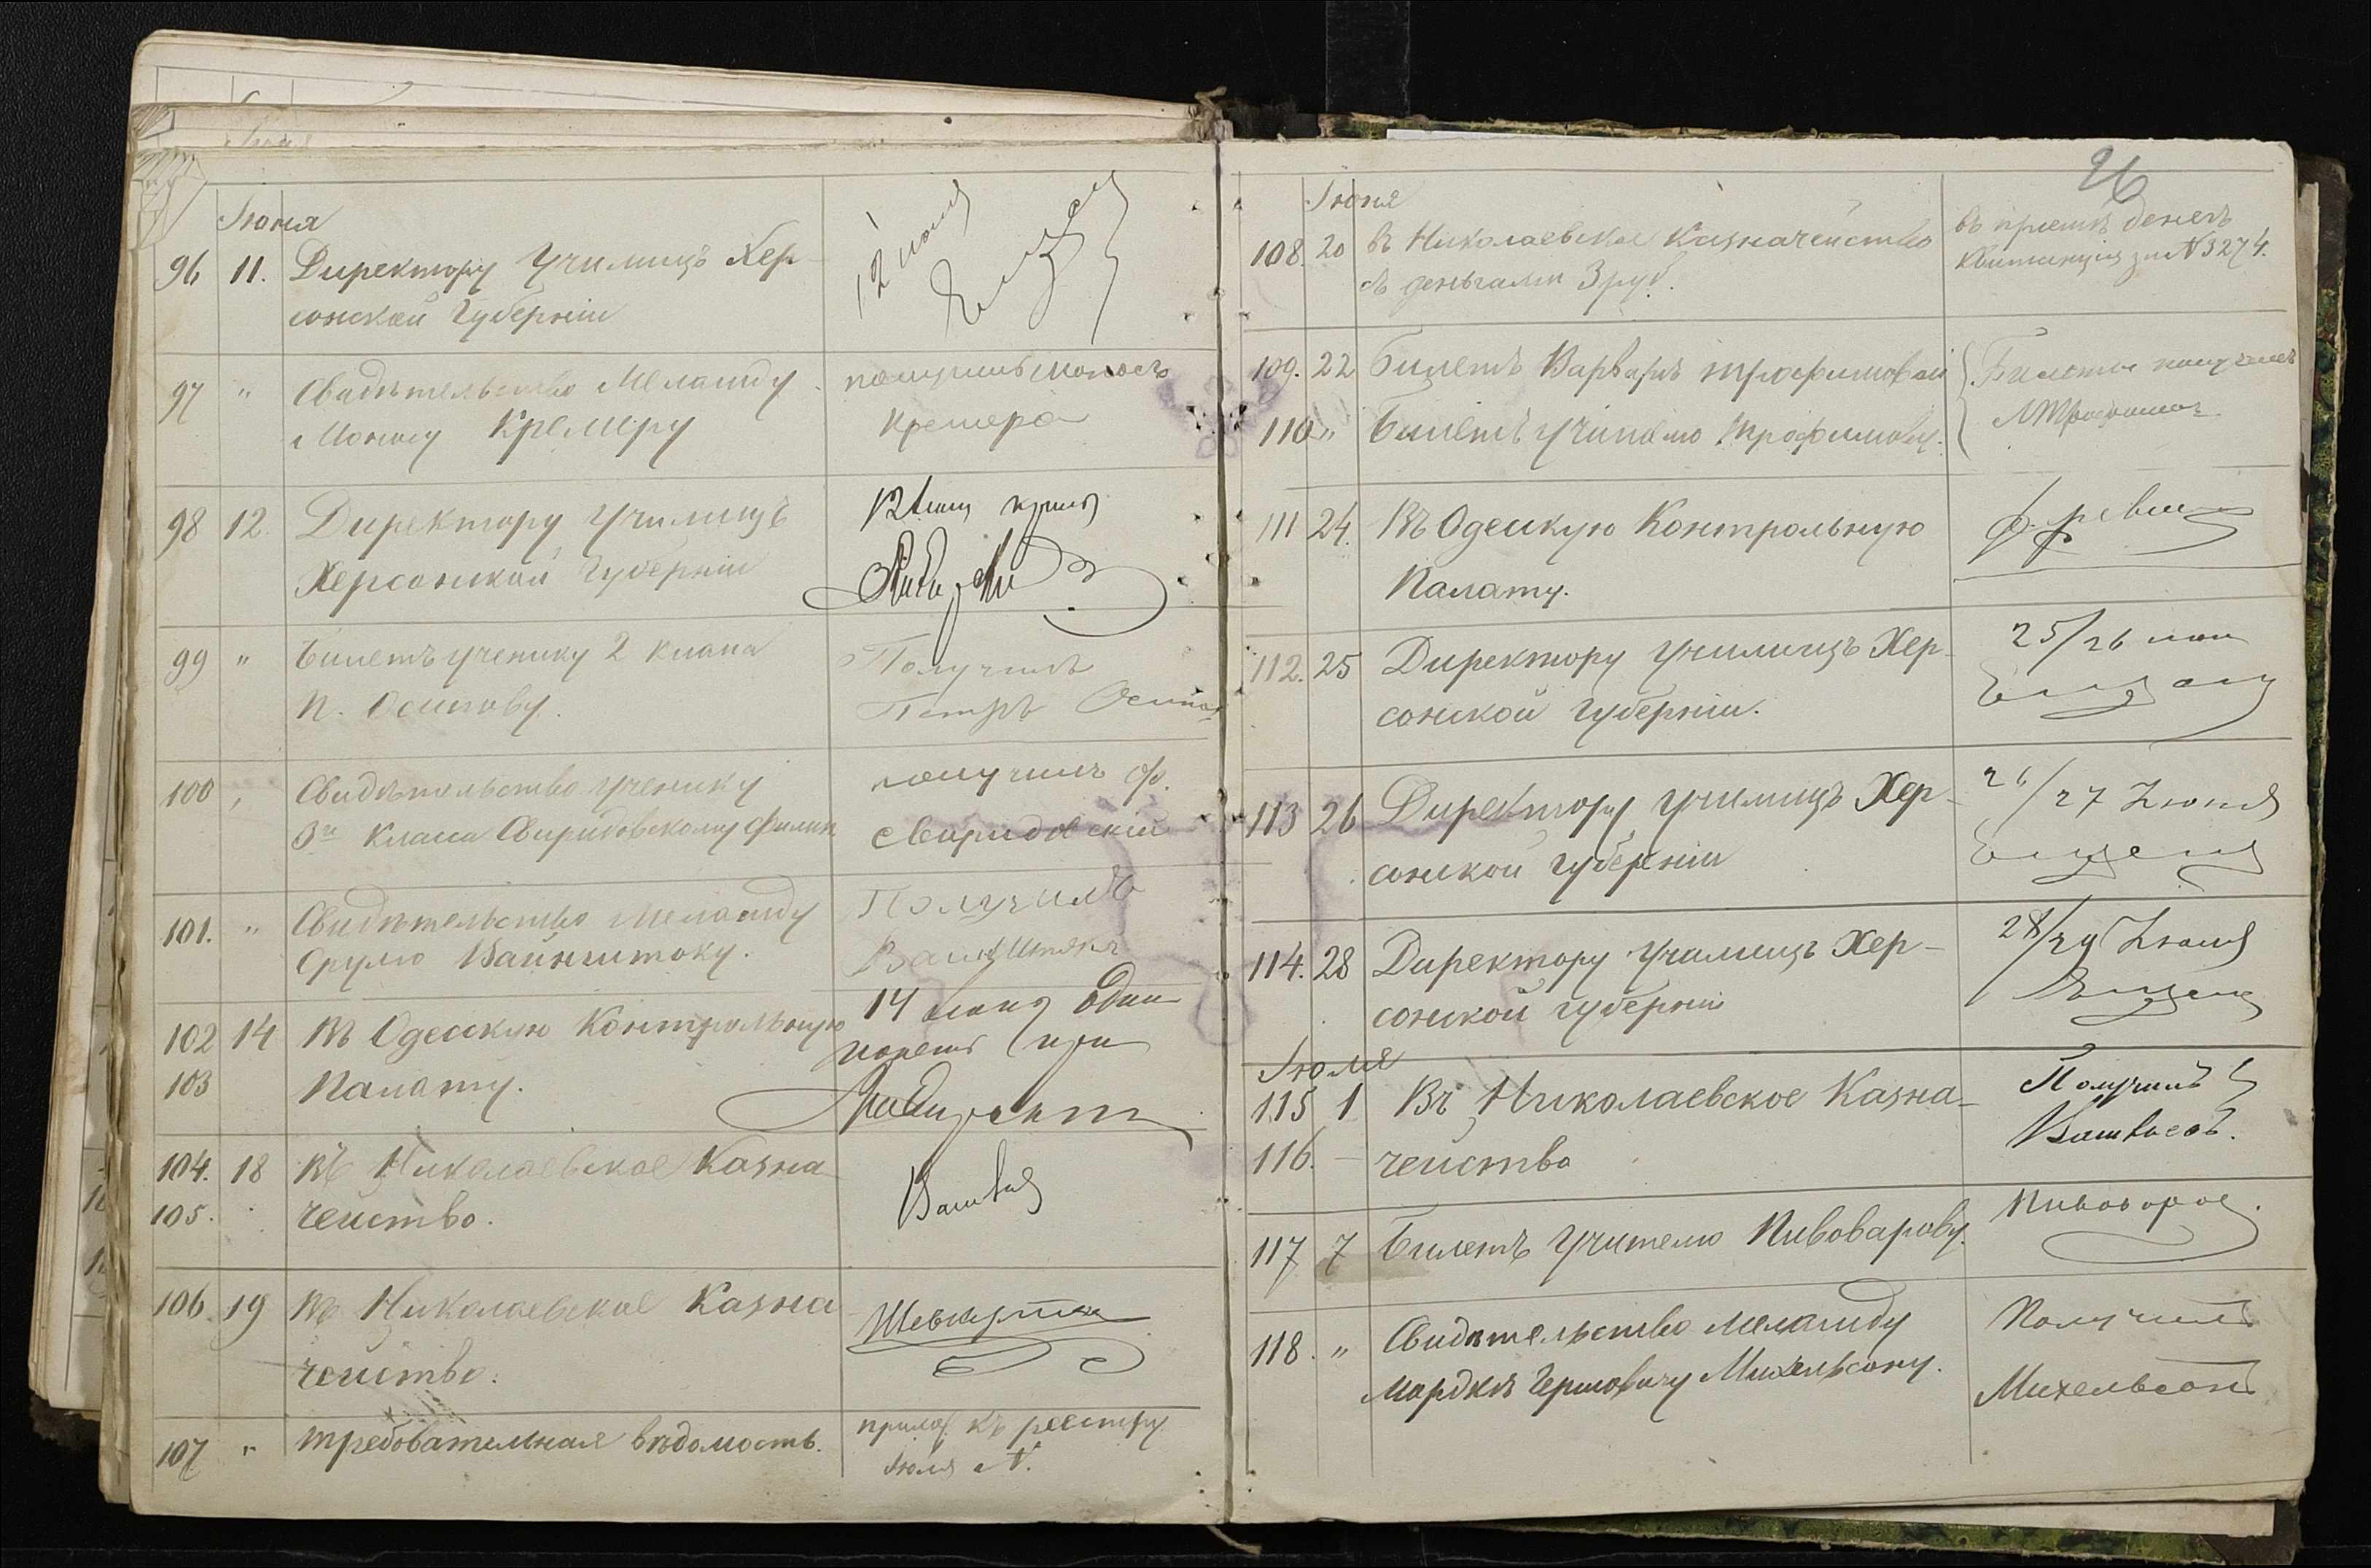 Іюня
96 11. Директору Училищъ Хер-
сонской Губерніи
12 Іюня
97 " Свидѣтельство Меламду
Моносу Кремеру
получилъ Моносъ
Кремеръ
98 12. Директору Училищъ
Херсонской Губерніи
12
99 " Билетъ ученику 2 класса
П. Осипову.
Получилъ
Петръ Осипов
100 " Свидѣтельство ученику
3го класса Свиридовскому Филип
получилъ Ф.
Свиридовскій
101. " Свидѣтельство Меламду
Срулю Вайнштоку.
Получилъ
Вайнштокъ
102 14 Въ Одесскую Контрольную
103 Палату.
14 Іюня Один
пакетъ
104. 18 Въ Николаевское Казна
105. чейство.
106 19 Въ Николаевское Казна
чейство.
107 " Требовательная вѣдомость.
прилож. къ реестру
Іюля №.
26
Іюня
108. 20 Въ Николаевское Казначейство
съ деньгами 3 руб.
въ пріемѣ денегъ
Квитанція за № 3274.
109. 22 Билетъ Варварѣ Трофимовой
110 " Билетъ Учителю Трофимову.
Билеты получилъ
Трофимовъ
111 24. Въ Одесскую Контрольную
Палату.
112. 25 Директору Училищъ Хер-
сонской Губерніи.
25/26
113 26 Директору Училищъ Хер-
сонской Губерніи
26/27 Іюня
114. 28 Директору Училищъ Хер-
сонской Губерніи
28/29 Іюня
Іюля
115 1 Въ Николаевское Казна-
116. — чейство
Получилъ
117 7 Билетъ Учителю Пивоварову.
Пивоваров
118. " Свидѣтельство Меламду
Мордкѣ Гершовичу Михельсону.
Получилъ
Михельсонъ